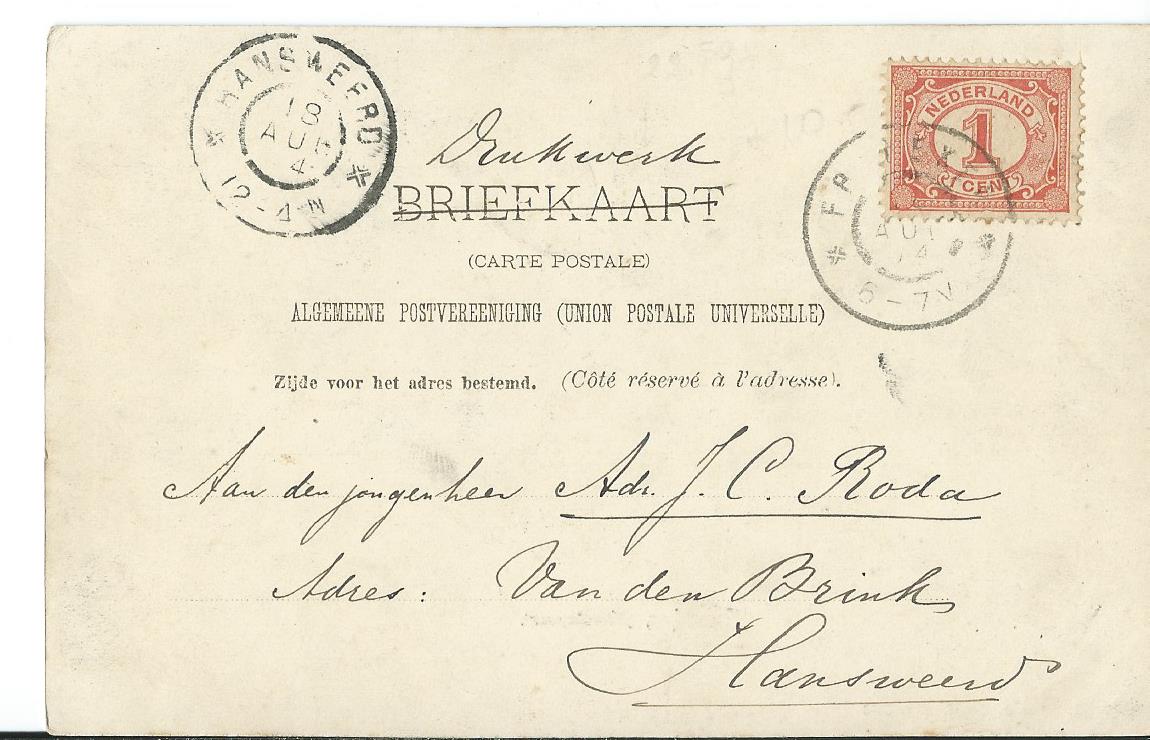 HANSWEERD
18
AUG
4
12-4N
NEDERLAND
1
1 CENT
AUG
5-7N
Drukwerk
BRIEFKAART
(CARTE POSTALE)
ALGEMEENE POSTVEREENIGING (UNION POSTALE UNIVERSELLE)
Zijde voor het adres bestemd. (Côté réservé à l'adresse).
Aan den jongenheer Adr. J. C. Roda
Adres: Van den Brink
Hansweerd